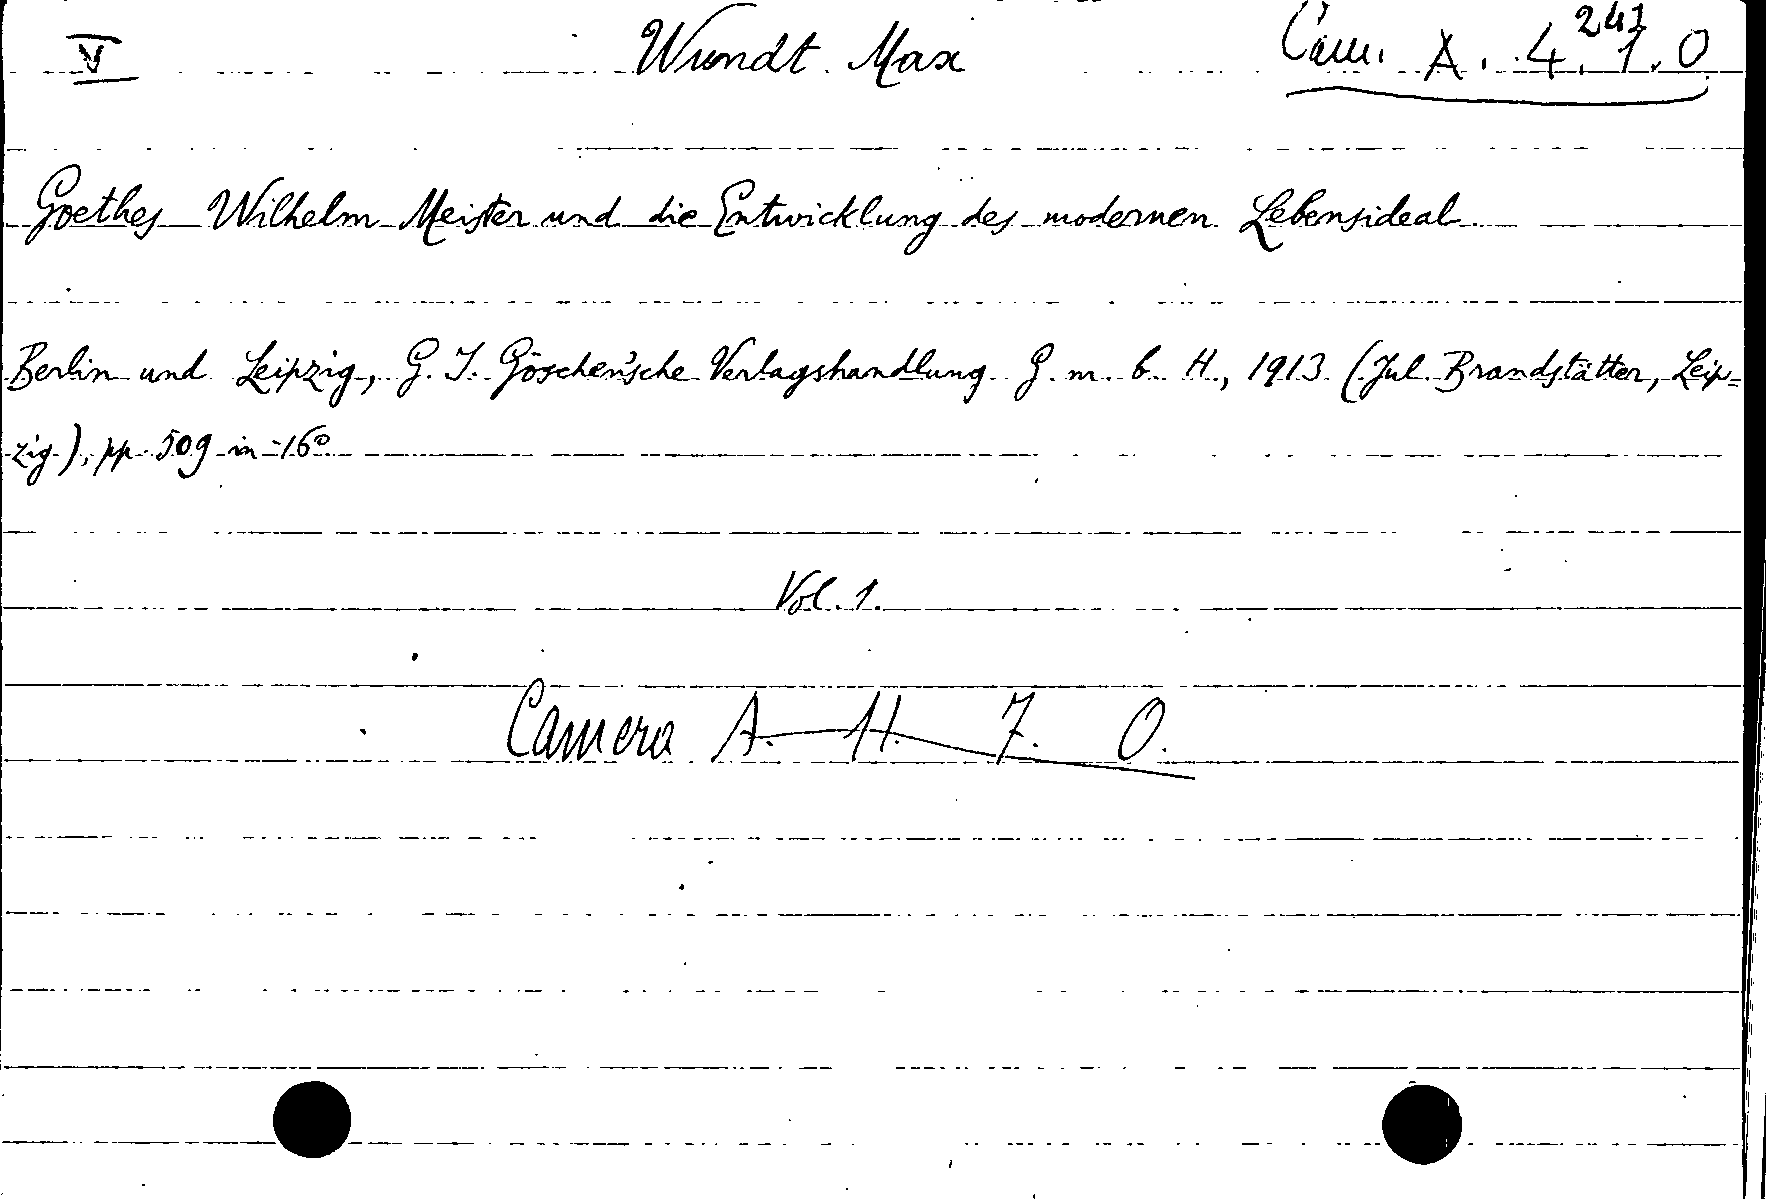 V Wundt Max Cam. A. 4.1.0
247
Goethes Wilhelm Meister und die Entwicklung des modernen Lebensideal
Berlin und Leipzig, G. J. Göschen'sche Verlagshandlung G. m. b. H., 1913 (Jul. Brandstätter, Leip=
zig), pp. 509 in -16°
Vol. 1.
Camera A. H. 7. O.